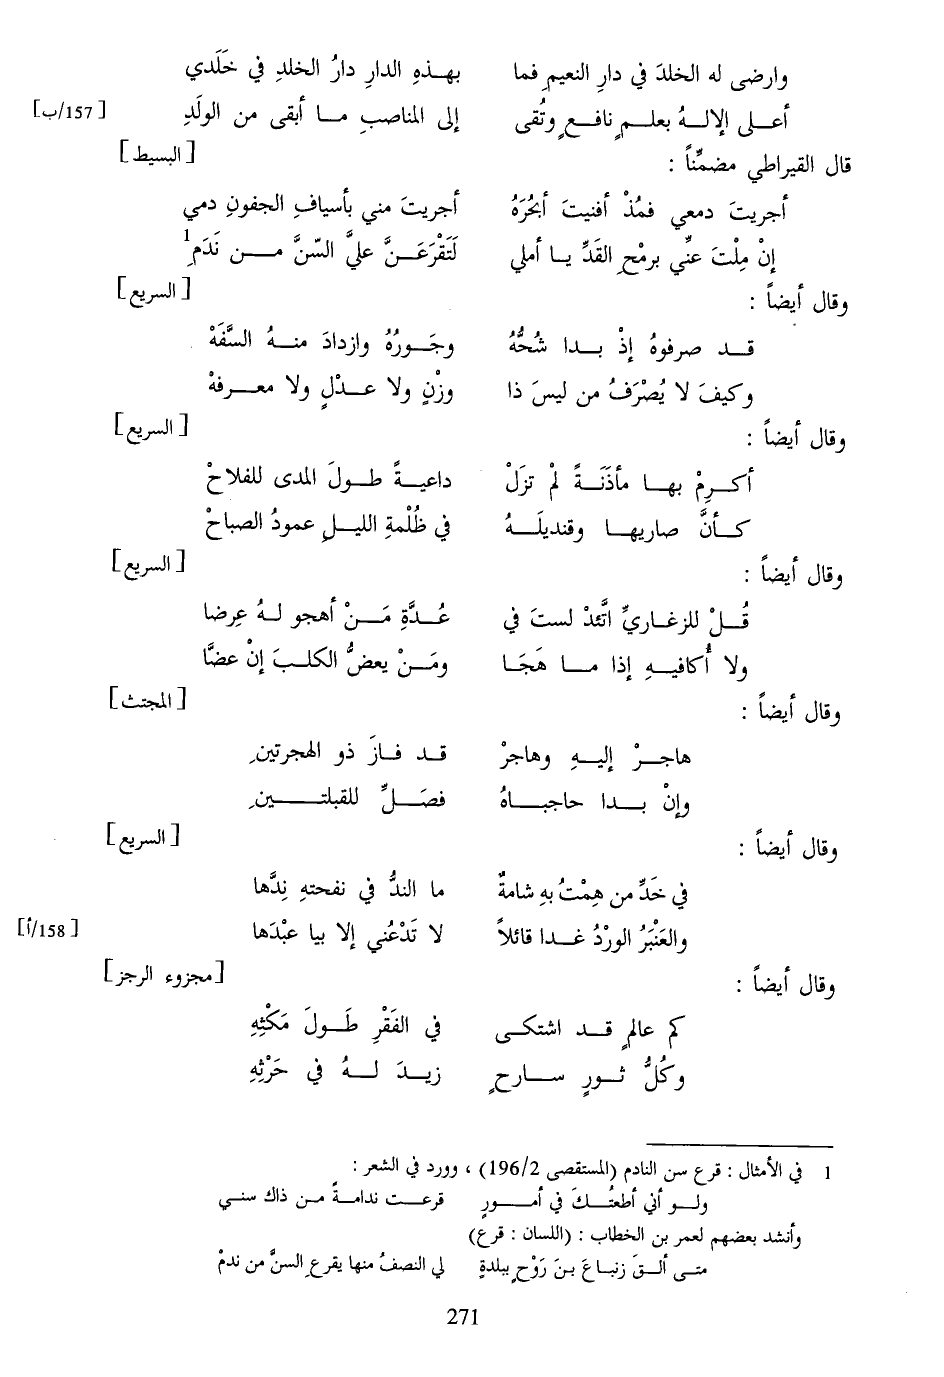 وارضى له الخلدَ في دارِ النعيمِ فما بهـذهِ الدارِ دارُ الخلدِ في خَلَدي
أعـلى الإلـهُ بعلـمٍ نافـعٍ وتُقى إلى المناصبِ مـا أبقى من الولَدِ [157/ب]
قال القيراطي مضمِّناً : [البسيط]
أجريتَ دمعي فمُذْ أفنيتَ أبحُرَهُ أجريتَ مني بأسيافِ الجفونِ دمي
إنْ مِلْتَ عنِّي برمْحِ القَدِّ يـا أملي لَتَقْرَعَـنَّ عليَّ السّنَّ مـن نَدَمِ1
وقال أيضاً : [السريع]
قـد صرفوهُ إذْ بـدا شُحُّهُ وجَـورُهُ وازدادَ منـهُ السَّفَهْ
وكيفَ لا يُصْرَفُ من ليسَ ذا وزْنٍ ولا عـدْلٍ ولا معـرفهْ
وقال أيضاً : [السريع]
أكـرِمْ بهـا مأذَنَـةً لمْ تزَلْ داعيـةً طـولَ المدى للفلاحْ
كـأنَّ صاريهـا وقنديلَـهُ في ظُلْمةِ الليـلِ عمودُ الصباحْ
وقال أيضاً : [السريع]
قُـلْ للزغـاريِّ اتَّئدْ لستَ في عُـدَّةِ مَـنْ أهجو لـهُ عِرضا
ولا أُكافيـهِ إذا مـا هَجَـا ومَـنْ يعضُّ الكلـبَ إنْ عضَّا
وقال أيضاً : [المجتث]
هاجـرْ إليـهِ وهاجرْ قـد فـازَ ذو الهجرتينِ
وإنْ بـدا حاجبـاهُ فصَـلِّ للقبلتـينِ
وقال أيضاً : [السريع]
في خَدِّ من هِمْتُ بهِ شامةٌ ما الندُّ في نفحتهِ نِدَّها
والعَنْبَرُ الورْدُ غـدا قائلاً لا تَدْعُني إلا بيا عبْدَها [158/أ]
وقال أيضاً : [مجزوء الرجز]
كم عالمٍ قـد اشتكـى في الفَقْرِ طَـولَ مَكْثِهِ
وكُلُّ ثـورٍ سـارحٍ زيـدَ لـهُ في حَرْثِهِ
1 في الأمثال : قرع سن النادم (المستقصى 196/2) ، وورد في الشعر :
ولـو أني أطعتُـكَ في أمـورٍ قرعـت ندامـةً مـن ذاك سنـي
وأنشد بعضهم لعمر بن الخطاب : (اللسان : قرع)
متـى ألـقَ زنبـاعَ بـنَ رَوْحٍ ببلدةٍ لي النصفُ منها يقرعِ السنَّ من ندمْ
271